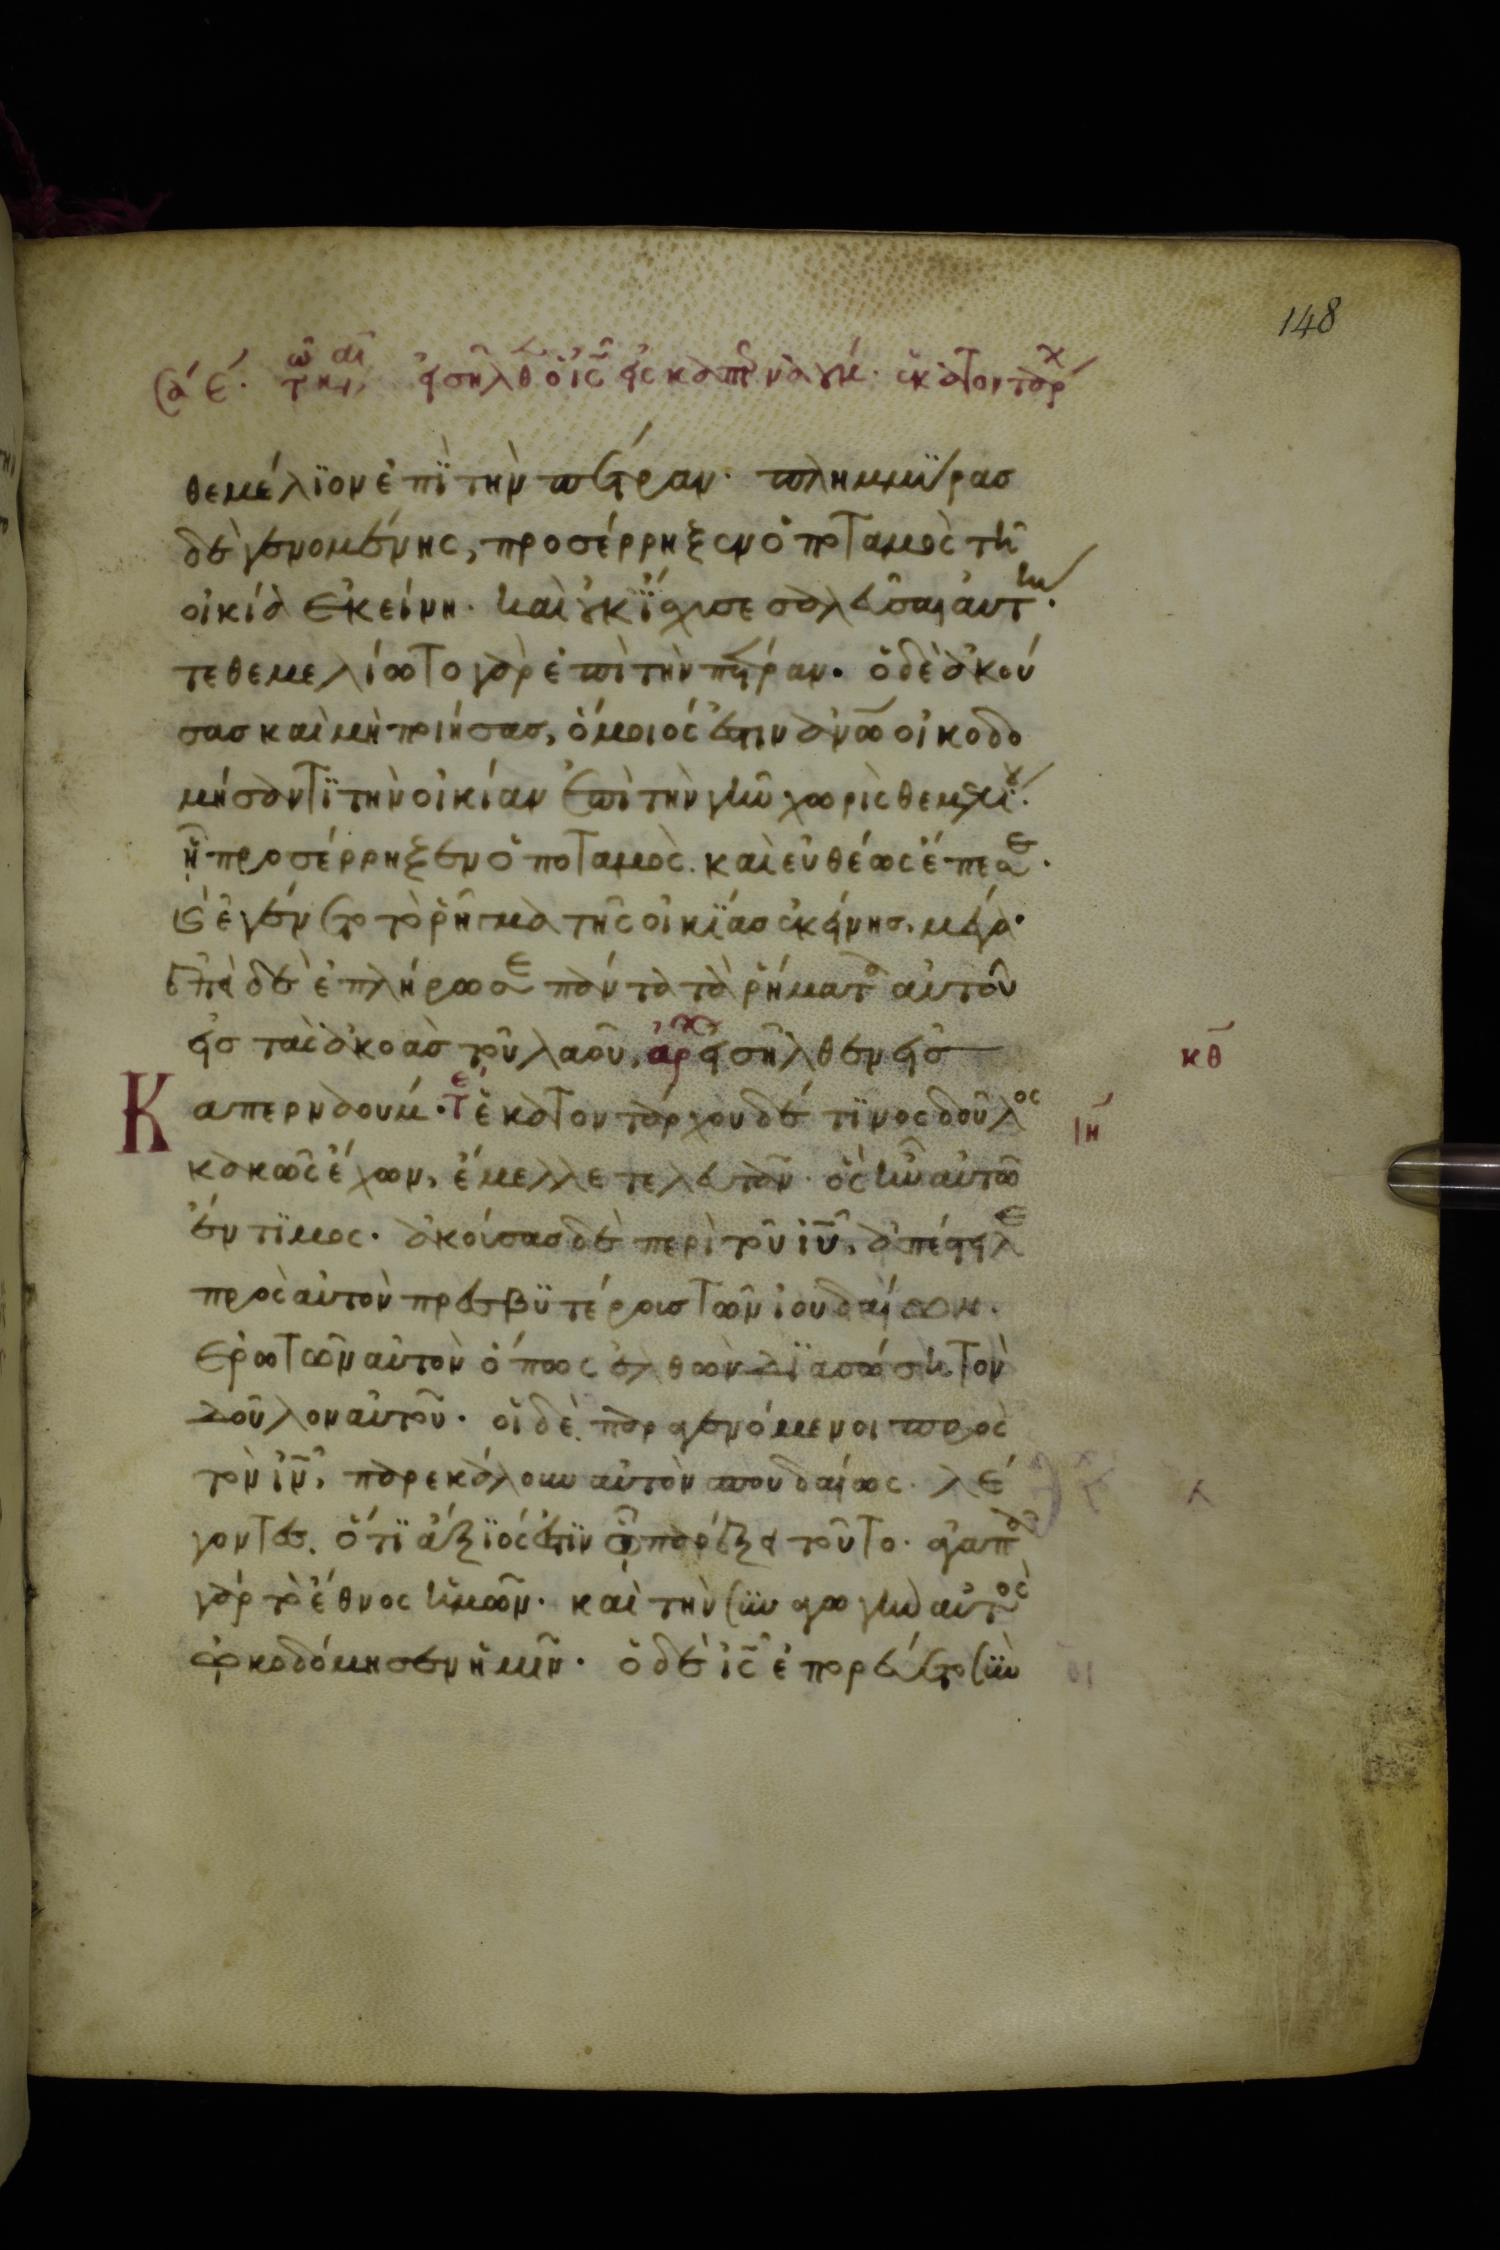 148
θεμέλϊον ἐπὶ τὴν πέτραν· πλημμύρας
δὲ γενομένης, προσέρρηξεν ὁ ποταμὸς τῆ
οἰκία ἐκείνη· καὶ οὐκ ἴσχυσε σαλεῦσαι αὐτήν·
τεθεμελίωτο γὰρ ἐπὶ τὴν πέτραν· ὁ δὲ ἀκού
σας καὶ μὴ ποιήσας, ὅμοιός ἐστιν ἀν̅ω οἰκοδο
μήσαντϊ τὴν οἰκίαν ἐπὶ τὴν γῆν χωρὶς θεμελίου·
ἧ προσέρρηξεν ὁ ποταμὸς· καὶ εὐθέως ἔπεσε·
καὶ ἐγένετο τὸ ῥῆγμα τῆς οἰκϊάς ἐκείνης, μέγα·
ἐπεὶ δὲ ἐπλήρωσε πάντα τὰ ῥήματα αὐτοῦ
εἰς τὰς ἀκοὰς τοῦ λαοῦ, ἀρχ εἰσῆλθεν εἰς
κθ
Καπερναούμ· τέ ἑκατοντάρχου δέ τϊνος δοῦλος
ιη
κακῶς ἔχων, ἔμελλε τελευτᾶν· ὃς ἦν αὐτῶ
ἔντϊμος· ἀκούσας δὲ περὶ τοῦ ἰ̅υ̅, ἀπέστειλε
πρὸς αὐτὸν πρεσβϋτέρους τῶν ἰουδαίων·
ἐρωτῶν αὐτὸν ὅπως ἐλθὼν δϊασώση τὸν
δοῦλον αὐτοῦ· οἱ δὲ παραγενόμενοι πρὸς
τὸν ἰ̅ν̅, παρεκάλουν αὐτὸν σπουδαίως· λέ
γοντες, ὅτϊ ἄξϊός ἐστϊν ᾧ παρέξει τοῦτο· ἀγαπᾶ
γὰρ τὸ ἔθνος ἡμῶν· καὶ τὴν συναγωγὴν αὐτὸς
ὠκοδόμησεν ἡμῖν· ὁ δὲ ἰ̅ς̅ ἐπορεύετο σὺν